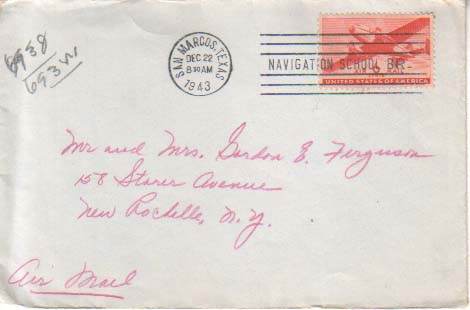 6938
693W
SAN MARCOS, TEXAS
DEC 22
8 30 AM
1943
NAVIGATION SCHOOL BR.
UNITED STATES OF AMERICA
Mr and Mrs. Gordon E. Ferguson
158 Storer Avenue
New Rochelle, N.Y.
Air Mail